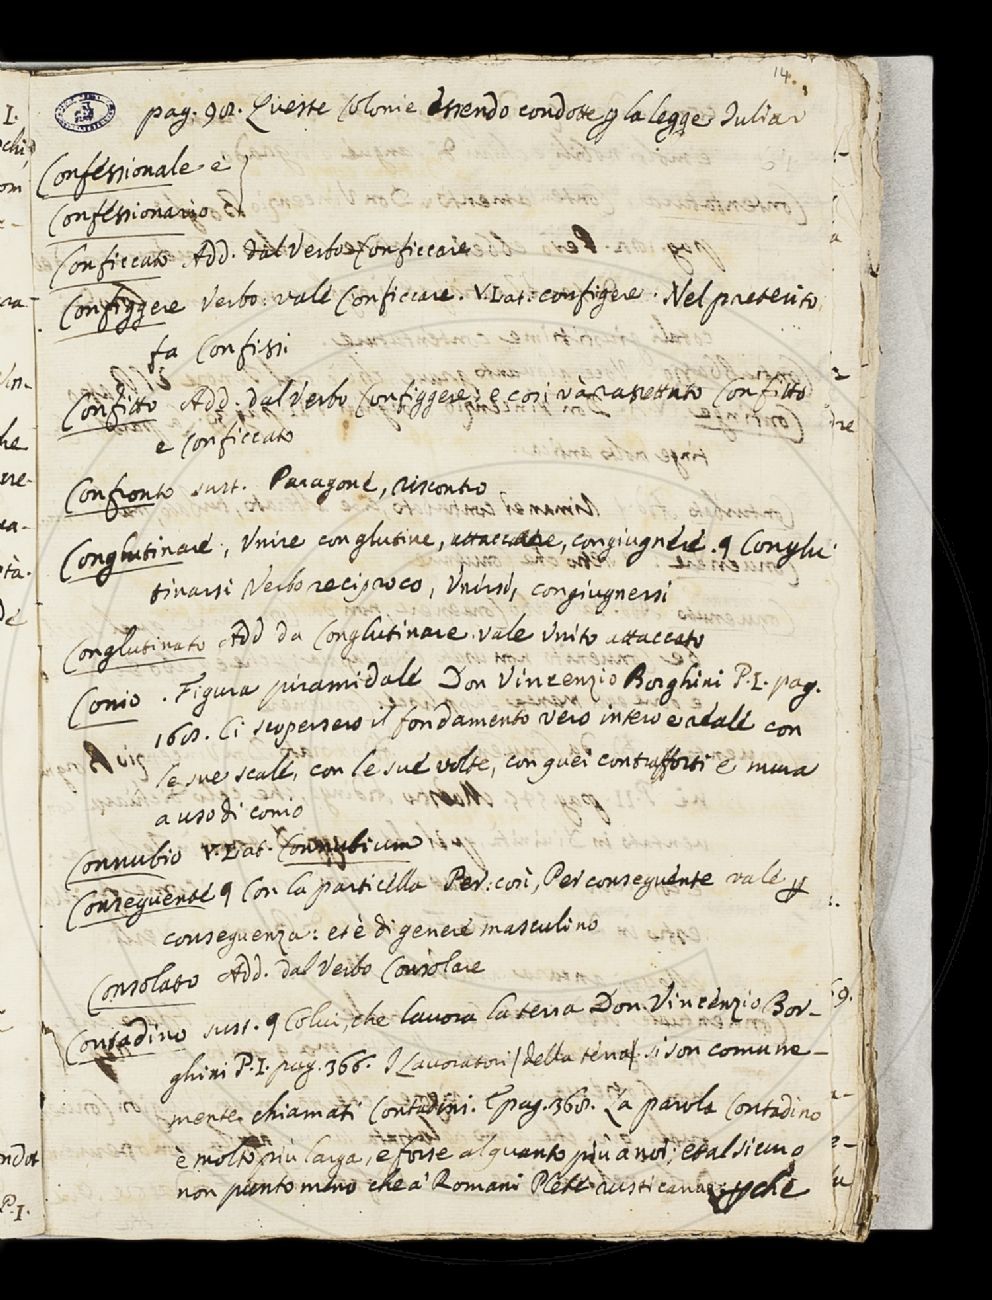 14.
pag. 98. Queste Colonie essendo condotte ꝑ la legge Iulia
Confessionale e
Confessionario
Conficcato Add. dal Verbo Conficcare
Configgere Verbo: vale Conficcare. V. Lat: configere. Nel preterito
fa Confissi
Confitto Add. dal Verbo Configgere: e così và rassettato Confitto
e Conficcato
Confronto sust. Paragone, riscontro
Conglutinare, Unire con glutine, attaccare, congiugnere. ꝗ Conglu
tinarsi Verbo reciproco, Unirsi, congiugnersi
Conglutinato Add da Conglutinare. vale Unito attaccato
Conio. Figura piramidale Don Vincenzio Borghini P. I. pag.
168. Ci scopersero il fondamento vero intero e reale con
le sue scale, con le sue volte, con quei contrafforti e mura
a uso di conio
Connubio V. Lat. Connubium
Conseguente ꝗ Con la particella Per: così, Per conseguente vale ꝑ
conseguenza: et è di genere masculino
Consolato Add. dal Verbo Consolare
Contadino sust. ꝗ Colui, che lavora la terra Don. Vincenzio Bor-
ghini P. I. pag. 366. I Lavoratori (della terra) si son comune-
mente chiamati Contadini. E pag. 368. La parola Contadino
è molto più larga, e forse alquanto più à noi; et al sicuro
non punto meno che a' Romani Plebe rusticana: ꝑche